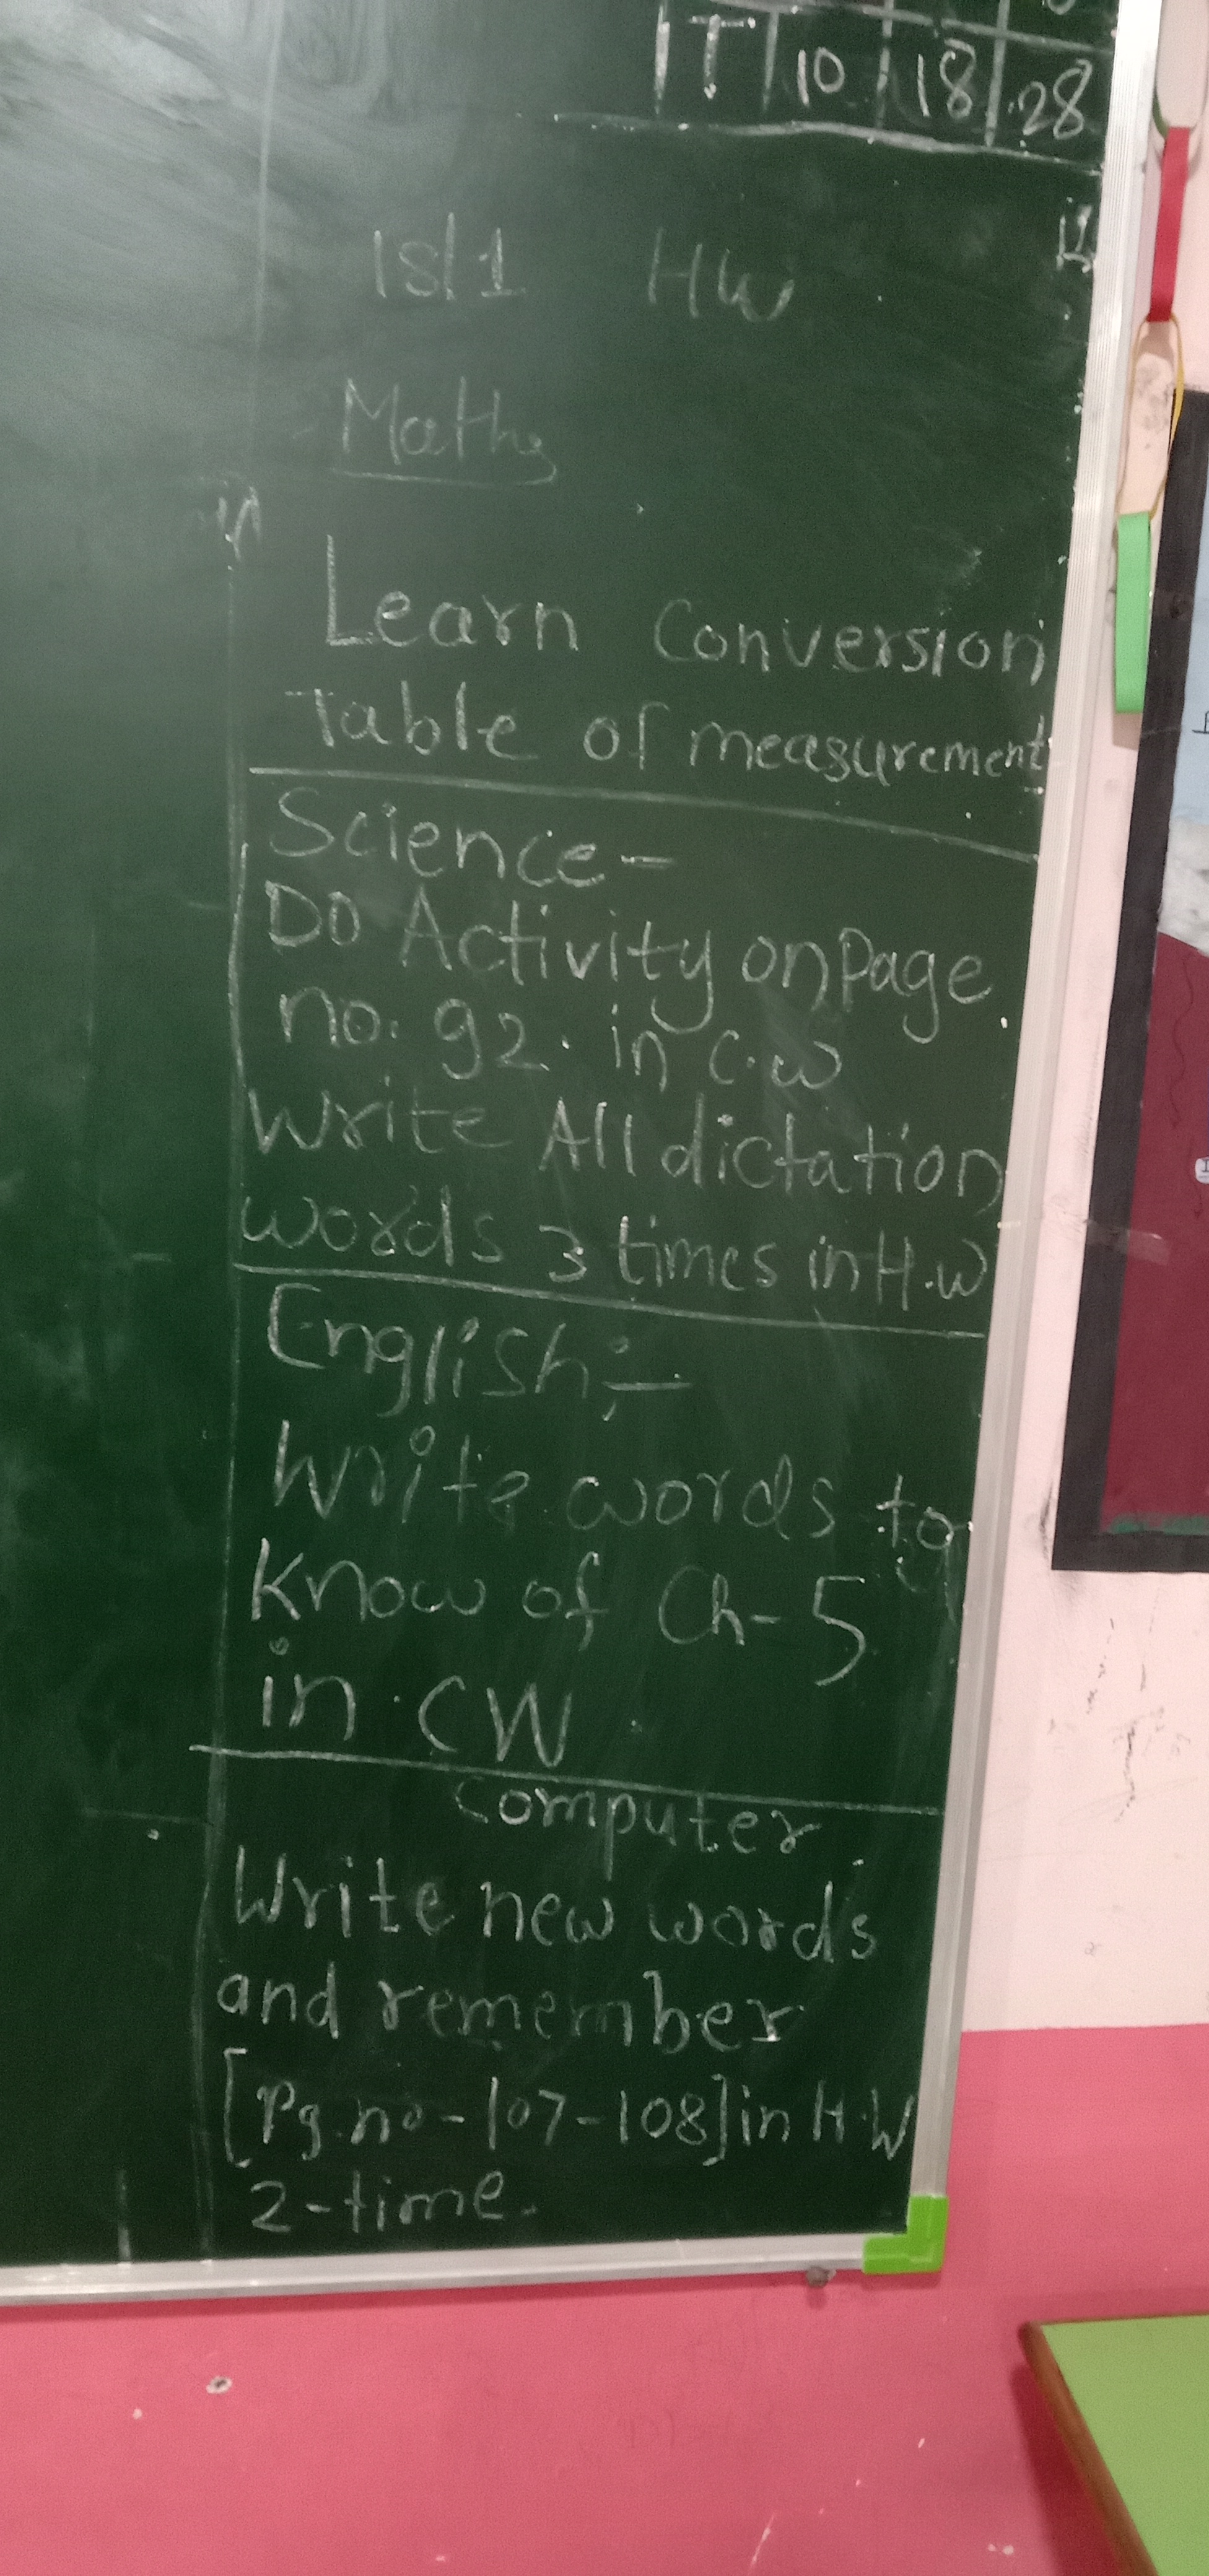 T 10 18 28
15/1 HW
Maths
Learn Conversion
Table of measurement
Science-
Do Activity on Page
no. 92. in C.W
Write All dictation
words 3 times in H.W
English:-
Write words to
Know of Ch-5
in CW
Computer
Write new words
and remember
[Pg.no-107-108] in H.W
2-time.